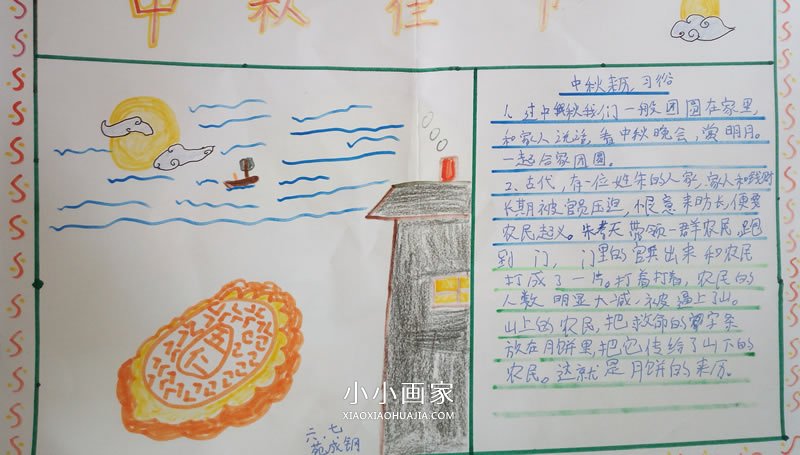 中秋佳节
中秋来历、习俗
1、过中秋我们一般团圆在家里,
和家人说话,看中秋晚会,赏明月。
一起合家团圆。
2、古代,有一位姓朱的人家,家人和钱财
长期被官员压迫,恨意来日方长,便要
农民起义。朱春天带领一群农民,跑
到门,门里的官兵出来和农民
打成了一片。打着打着,农民的
人数明显大减,被逼上了山。
山上的农民,把救命的字条
放在月饼里,把它传给了山下的
农民。这就是月饼的来历。
五仁
小小画家
XIAOXIAOHUAJIA.COM
六、七
苑成钢